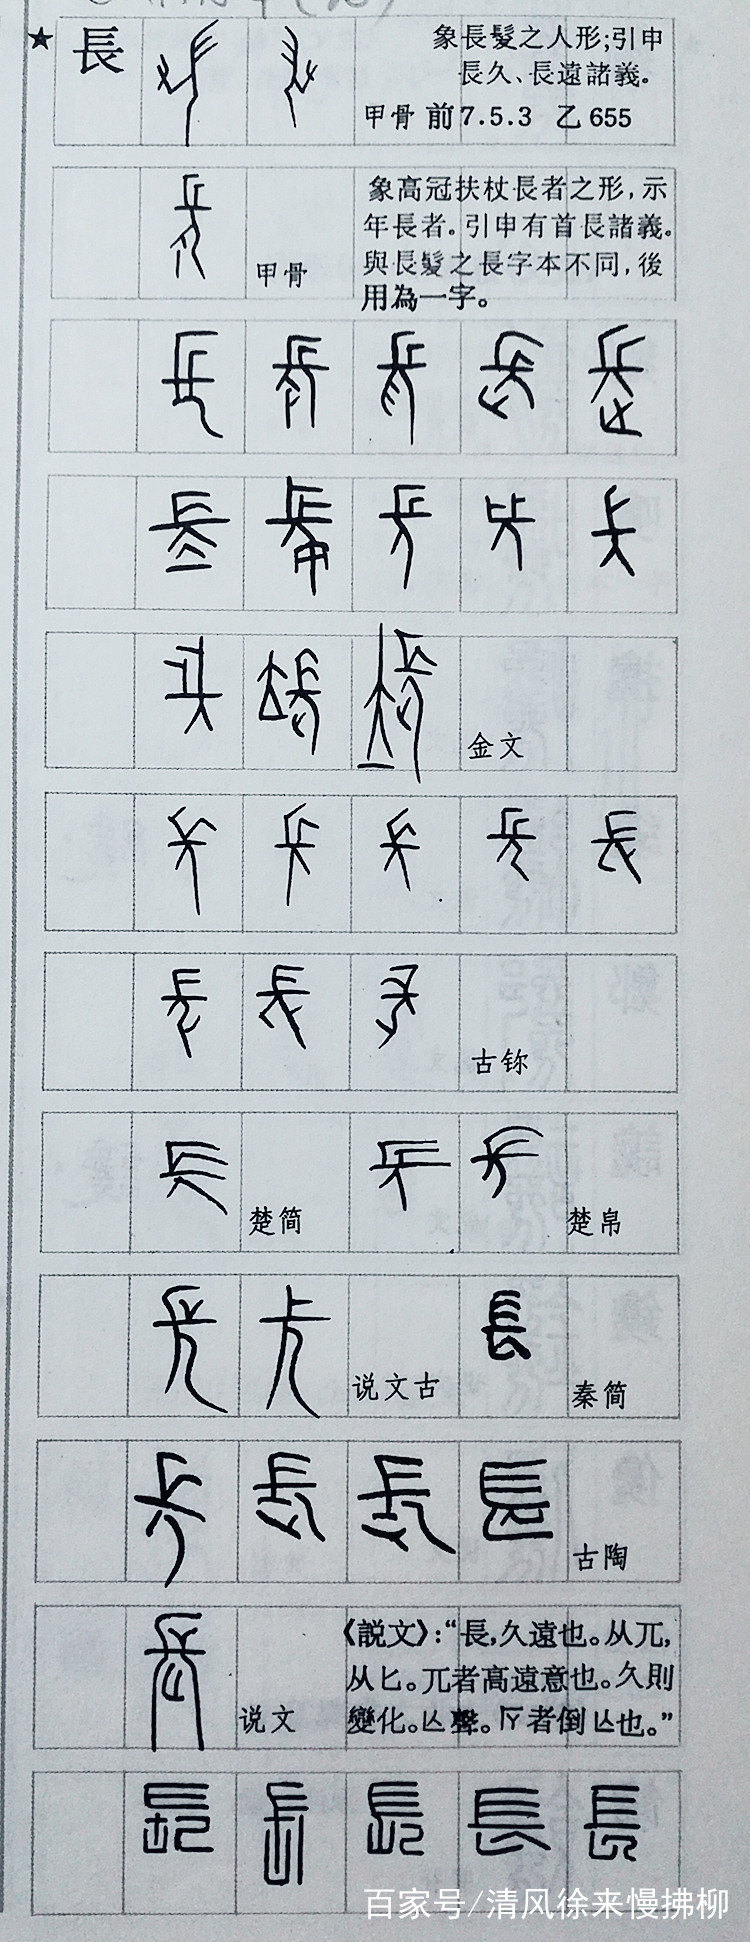 ★ 長
象長髮之人形;引申
長久、長遠諸義。
甲骨 前7.5.3 乙655
象高冠扶杖長者之形,示
年長者。引申有首長諸義。
甲骨
與長髮之長字本不同,後
用為一字。
金文
古鉨
楚简
楚帛
说文古
秦简
古陶
《説文》:“長,久遠也。从兀,
从匕。兀者高遠意也。久則
说文
變化。亾聲。𠂆者倒亾也。”
長 長 長 長 長
百家号/清风徐来慢拂柳